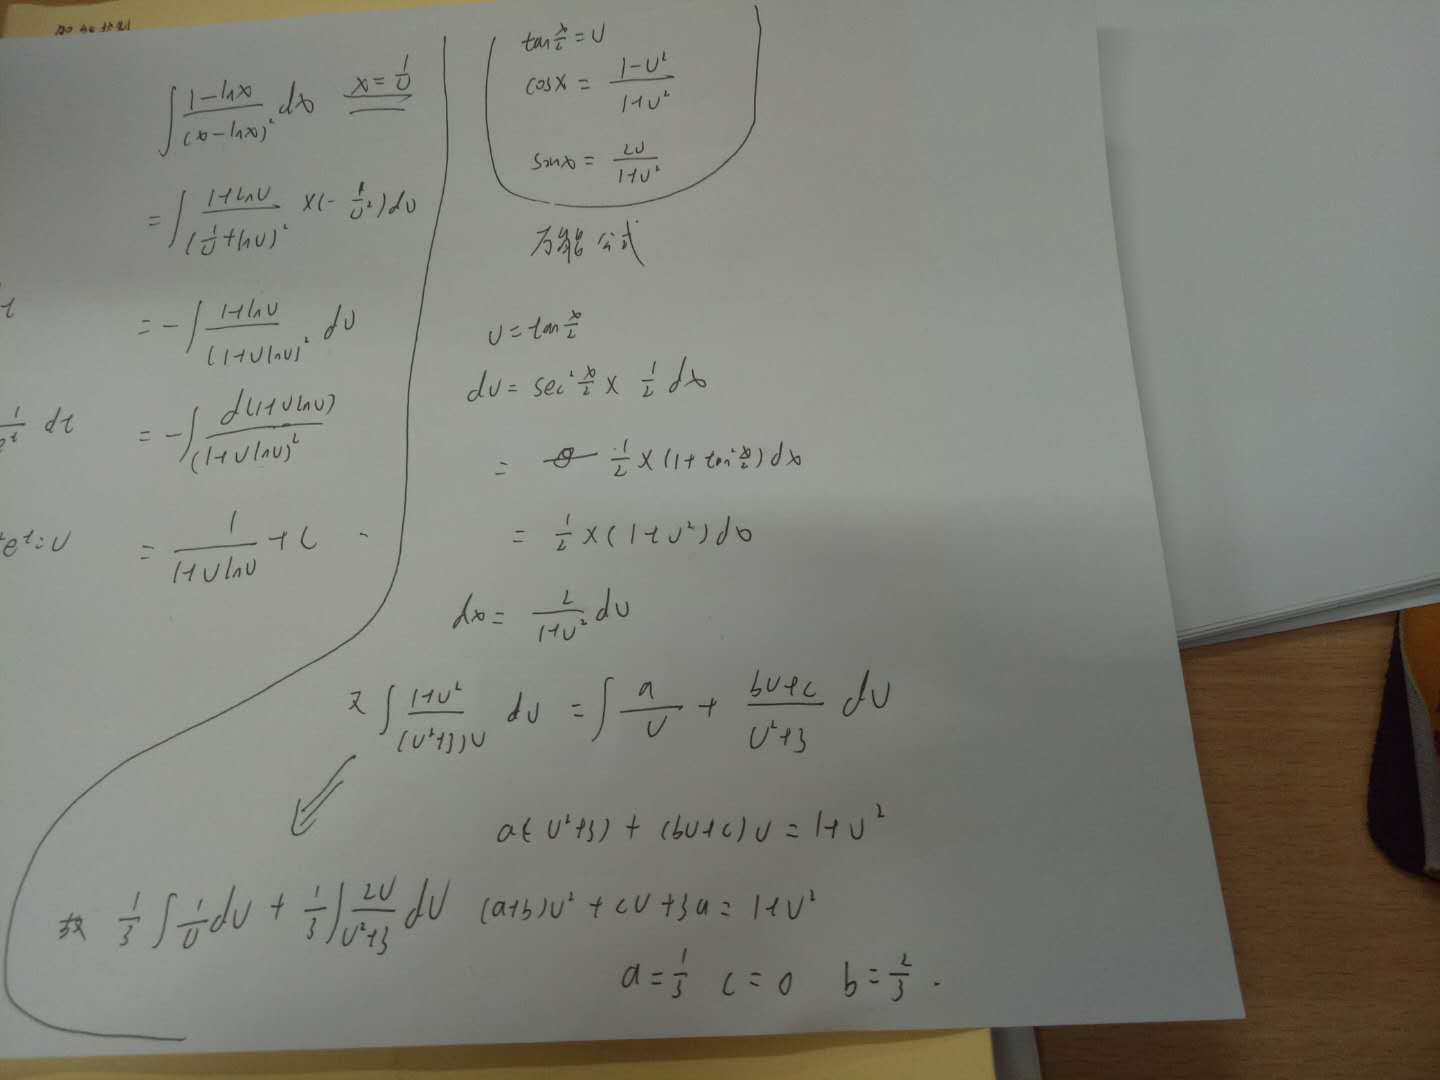 ∫ (1-lnx)/(x-lnx)² dx  x = 1/u
= ∫ (1+lnu)/(1/u+lnu)² ×(- 1/u²)du
= -∫ (1+lnu)/(1+ulnu)² du
= -∫ d(1+ulnu)/(1+ulnu)²
= 1/(1+ulnu) + C
t
1/e^t dt
e^t = u
tan x/2 = u
cosx = (1-u²)/(1+u²)
sinx = 2u/(1+u²)
万能公式
u = tan x/2
du = sec² x/2 × 1/2 dx
= 1/2 × (1+tan² x/2) dx
= 1/2 × (1+u²) dx
dx = 2/(1+u²) du
又 ∫ (1+u²)/((u²+3)u) du = ∫ a/u + (bu+c)/(u²+3) du
a(u²+3) + (bu+c)u = 1+u²
(a+b)u² + cu + 3a = 1+u²
a = 1/3 c = 0 b = 2/3 .
故 1/3 ∫ 1/u du + 1/3 ∫ 2u/(u²+3) du